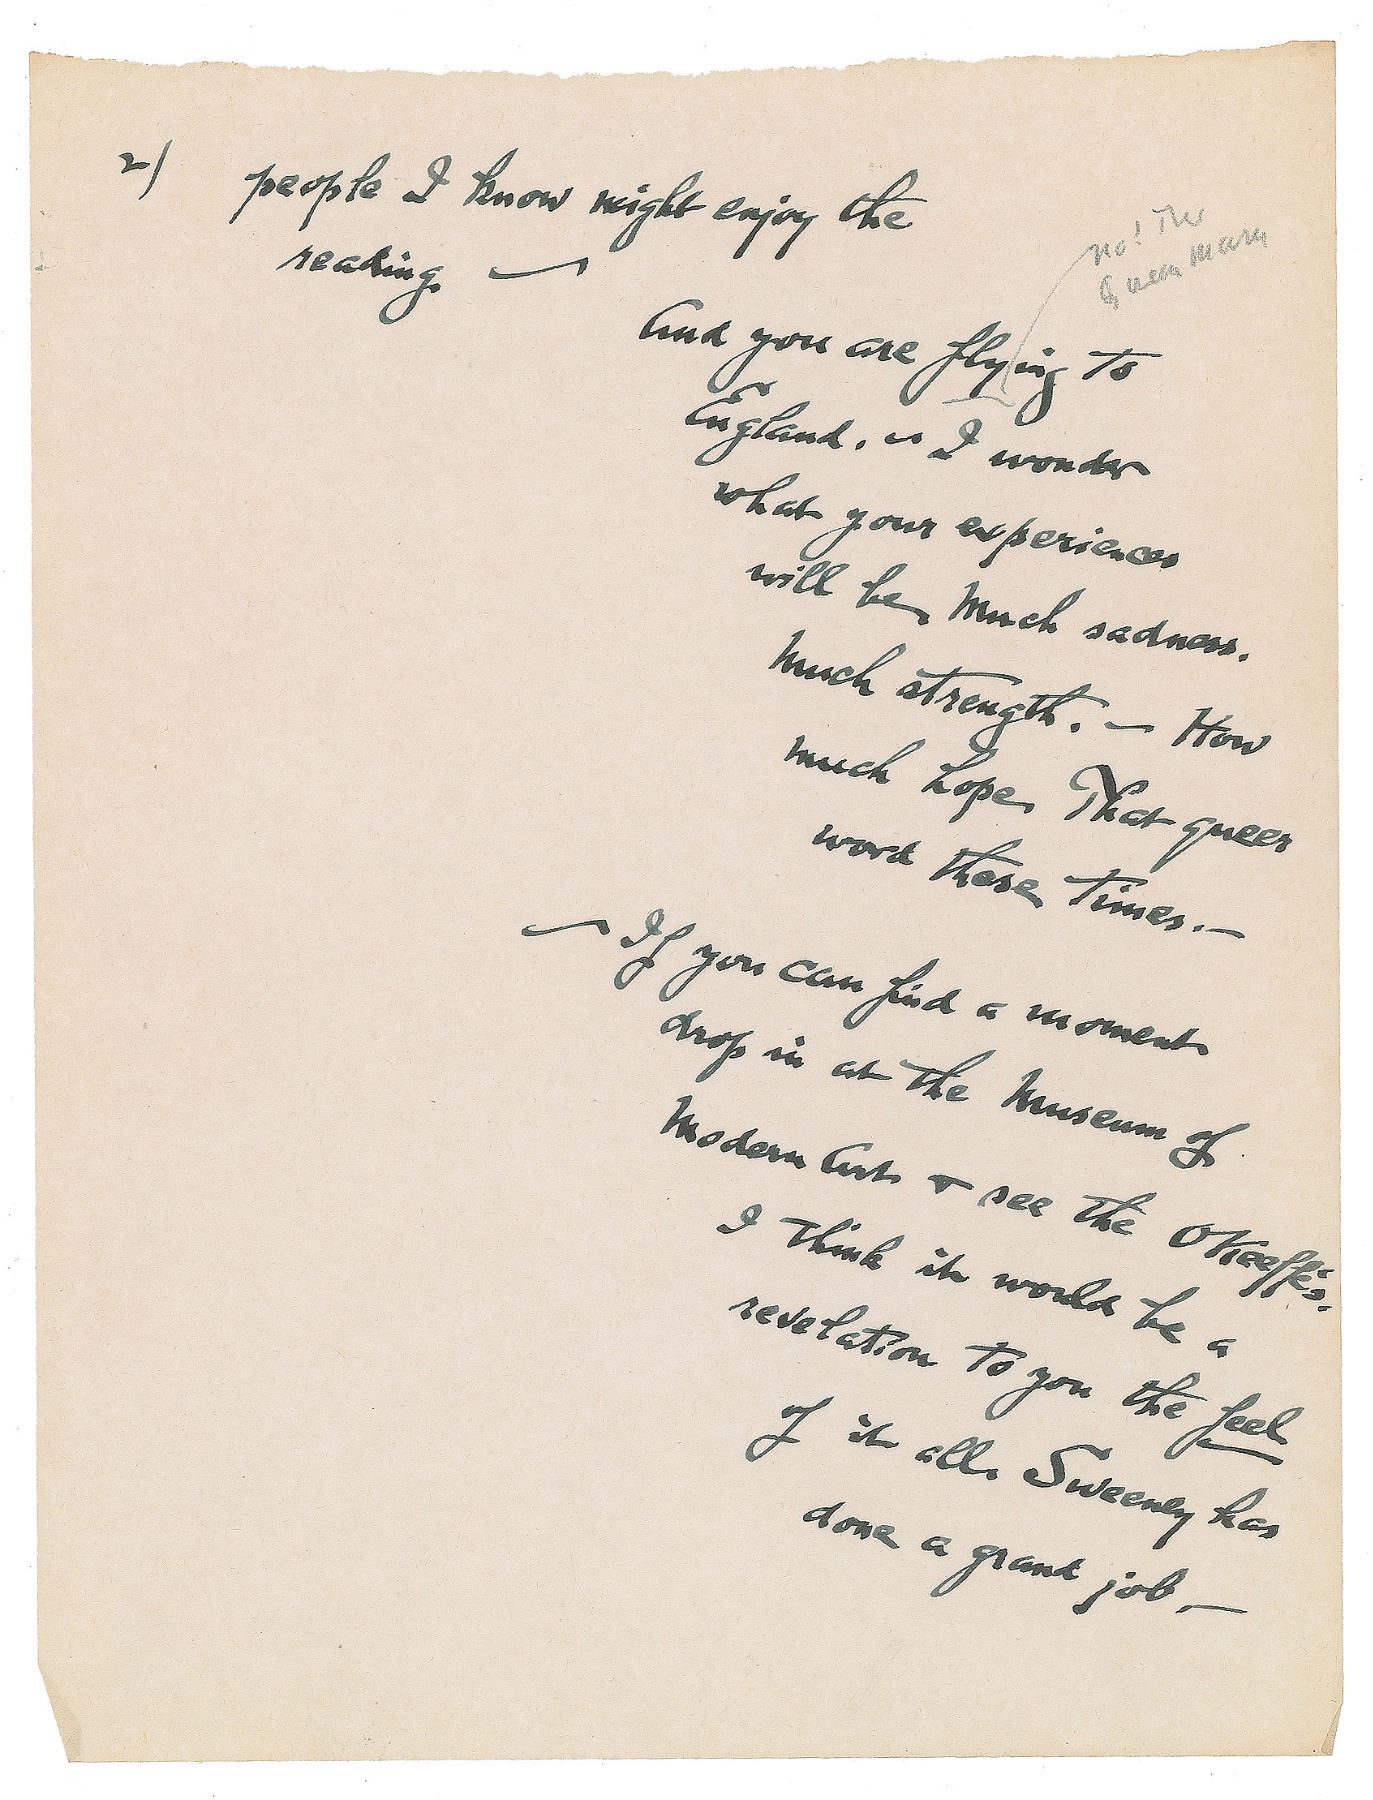 2)
people I know might enjoy the
reading. —
no! The
Queen Mary
And you are flying to
England. — I wonder
what your experiences
will be. Much sadness.
Much strength. — How
much hope. That queer
word these times. —
— If you can find a moment
drop in at the Museum of
Modern Art & see the O'Keeffe's.
I think it would be a
revelation to you the feel
of it all. Sweeney has
done a grand job. —